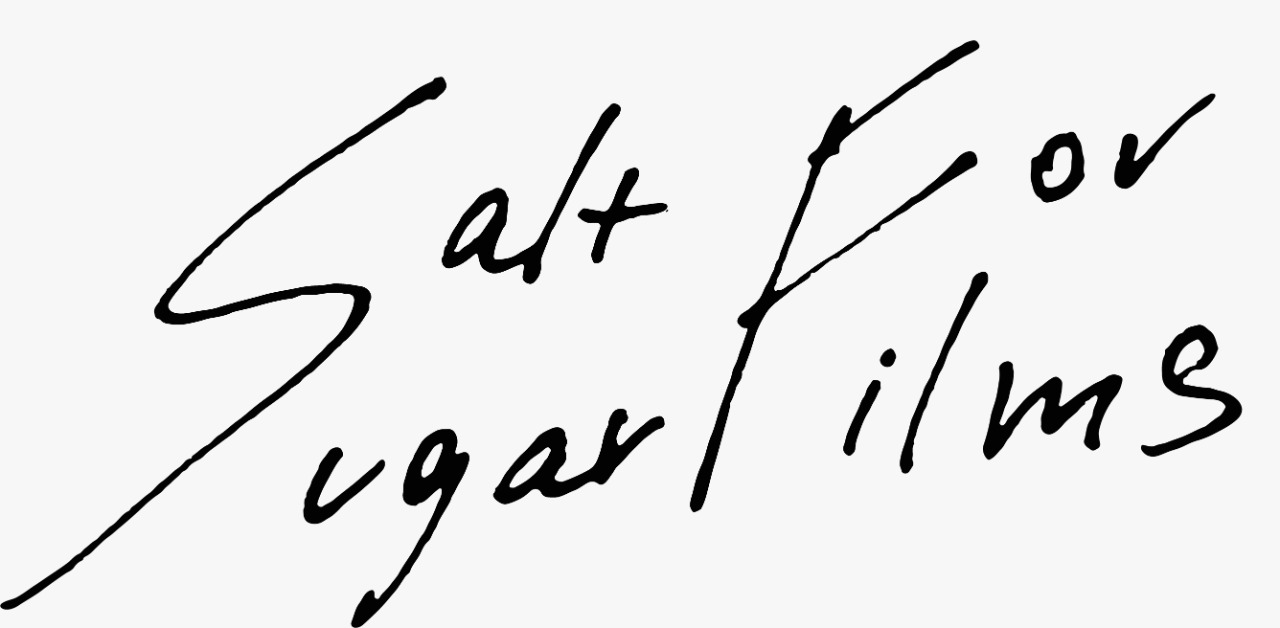 Salt For
Sugar Films